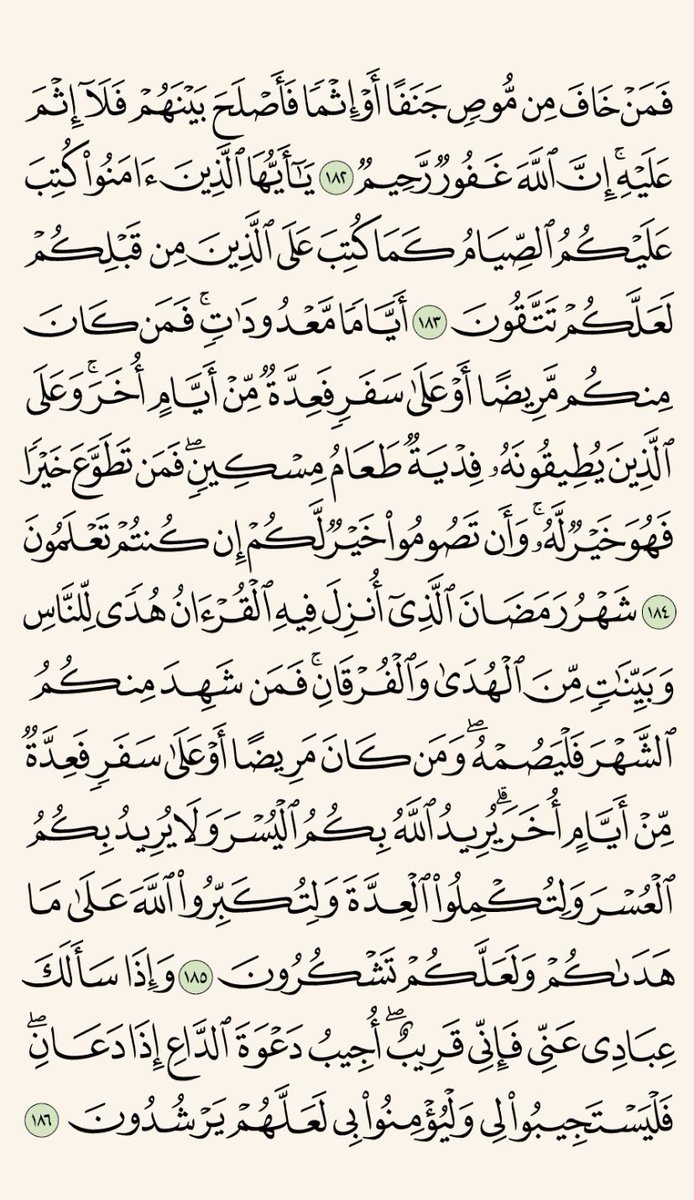 فَمَنۡ خَافَ مِن مُّوصٖ جَنَفًا أَوۡ إِثۡمٗا فَأَصۡلَحَ بَيۡنَهُمۡ فَلَآ إِثۡمَ
عَلَيۡهِۚ إِنَّ ٱللَّهَ غَفُورٞ رَّحِيمٞ ١٨٢ يَٰٓأَيُّهَا ٱلَّذِينَ ءَامَنُواْ كُتِبَ
عَلَيۡكُمُ ٱلصِّيَامُ كَمَا كُتِبَ عَلَى ٱلَّذِينَ مِن قَبۡلِكُمۡ
لَعَلَّكُمۡ تَتَّقُونَ ١٨٣ أَيَّامٗا مَّعۡدُودَٰتٖۚ فَمَن كَانَ
مِنكُم مَّرِيضًا أَوۡ عَلَىٰ سَفَرٖ فَعِدَّةٞ مِّنۡ أَيَّامٍ أُخَرَۚ وَعَلَى
ٱلَّذِينَ يُطِيقُونَهُۥ فِدۡيَةٞ طَعَامُ مِسۡكِينٖۖ فَمَن تَطَوَّعَ خَيۡرٗا
فَهُوَ خَيۡرٞ لَّهُۥۚ وَأَن تَصُومُواْ خَيۡرٞ لَّكُمۡ إِن كُنتُمۡ تَعۡلَمُونَ
١٨٤ شَهۡرُ رَمَضَانَ ٱلَّذِيٓ أُنزِلَ فِيهِ ٱلۡقُرۡءَانُ هُدٗى لِّلنَّاسِ
وَبَيِّنَٰتٖ مِّنَ ٱلۡهُدَىٰ وَٱلۡفُرۡقَانِۚ فَمَن شَهِدَ مِنكُمُ
ٱلشَّهۡرَ فَلۡيَصُمۡهُۖ وَمَن كَانَ مَرِيضًا أَوۡ عَلَىٰ سَفَرٖ فَعِدَّةٞ
مِّنۡ أَيَّامٍ أُخَرَۗ يُرِيدُ ٱللَّهُ بِكُمُ ٱلۡيُسۡرَ وَلَا يُرِيدُ بِكُمُ
ٱلۡعُسۡرَ وَلِتُكۡمِلُواْ ٱلۡعِدَّةَ وَلِتُكَبِّرُواْ ٱللَّهَ عَلَىٰ مَا
هَدَىٰكُمۡ وَلَعَلَّكُمۡ تَشۡكُرُونَ ١٨٥ وَإِذَا سَأَلَكَ
عِبَادِي عَنِّي فَإِنِّي قَرِيبٌۖ أُجِيبُ دَعۡوَةَ ٱلدَّاعِ إِذَا دَعَانِۖ
فَلۡيَسۡتَجِيبُواْ لِي وَلۡيُؤۡمِنُواْ بِي لَعَلَّهُمۡ يَرۡشُدُونَ ١٨٦